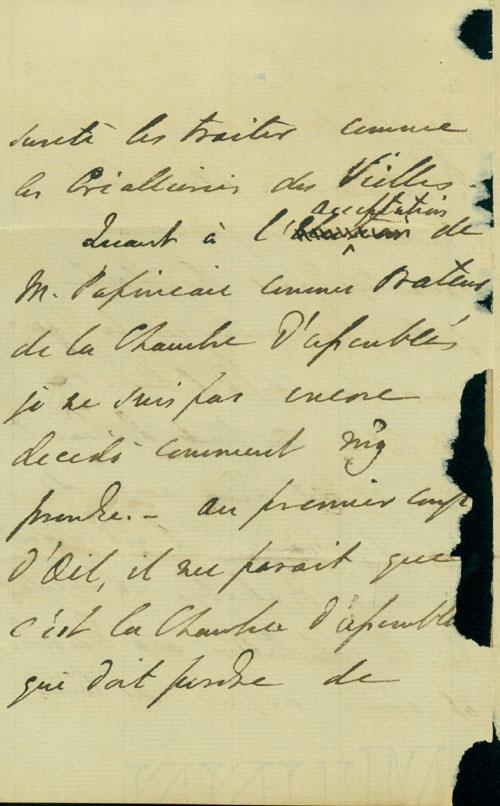 sureté les traiter comme
les Criailleries des Vielles.
acceptation
Quant à l' de
M. Papineau comme Orateur
de la Chambre d'assemblés
je ne suis pas encore
decidé comment m'y
prendre. – au premier coup
d'Œil, il me parait que
c'est la Chambre d'assemblé
qui doit perdre de